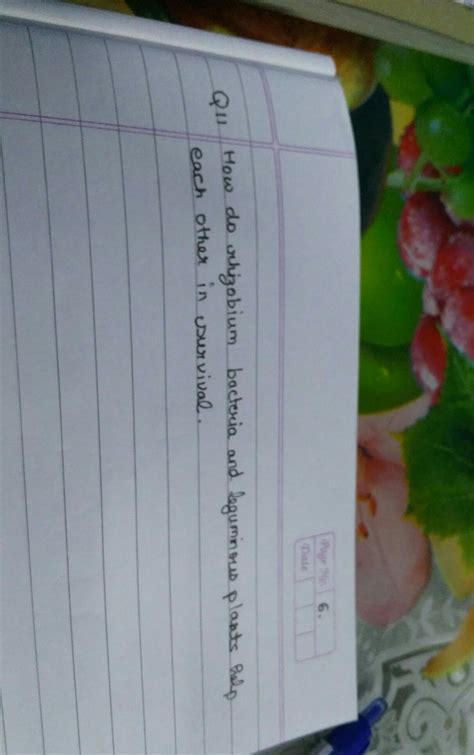 Page No. 6.
Date
Q11 How do rhizobium bacteria and leguminous plants help
each other in survival.